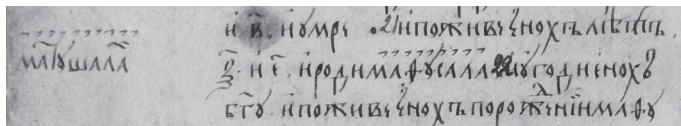 и҆ в҃. и҆ умре .к҃а и҆ поживе є҆нохъ лѣтъ
маѳусала ѯ҃. и҆ е҃. и҆ роди маѳусала .к҃в и҆ угоди є҆нохъ
б҃гу. и҆ поживе є҆нохъ по рожⷣенїи маѳу